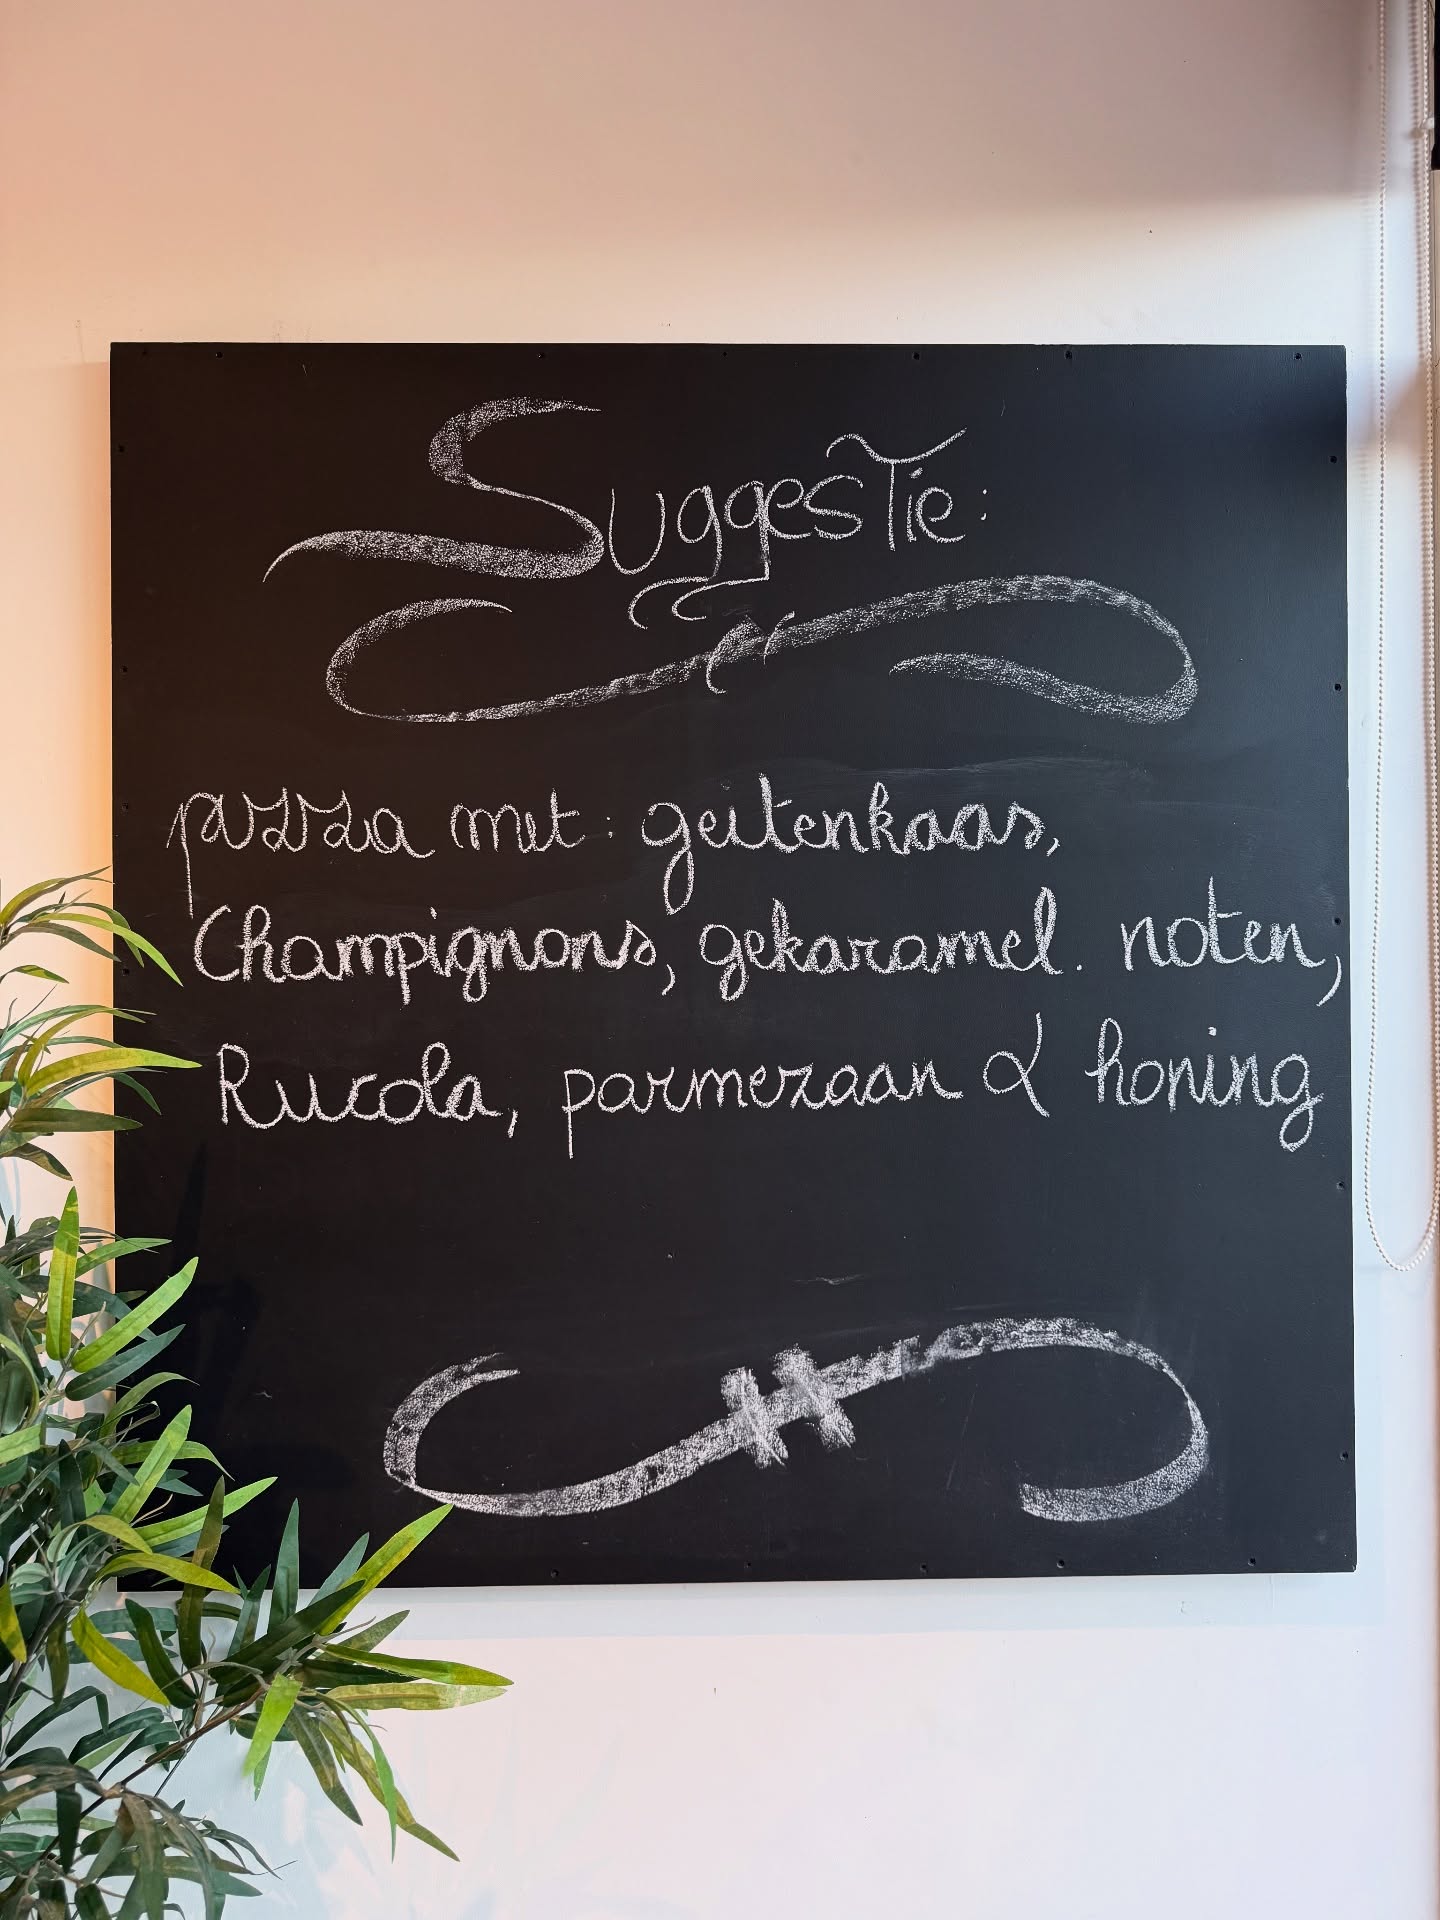 Suggestie:
pizza met: geitenkaas,
Champignons, gekaramel. noten,
Rucola, parmezaan & honing